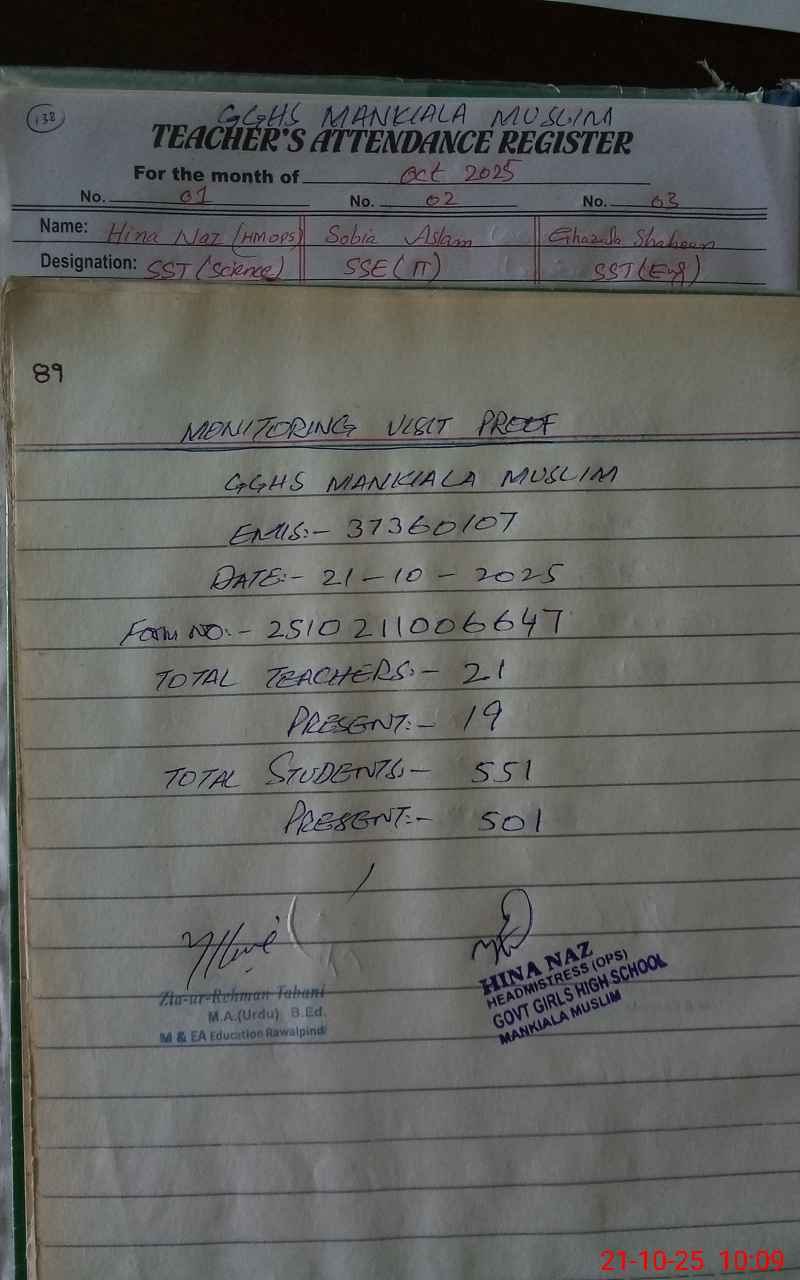 138
GGHS MANKIALA MUSLIM
TEACHER'S ATTENDANCE REGISTER
For the month of Oct 2025
No. 01 No. 02 No. 03
Name: Hina Naz (HM OPS) Sobia Aslam Ghazala Shaheen
Designation: SST (Science) SSE (IT) SST (Eng)
89
MONITORING VISIT PROOF
GGHS MANKIALA MUSLIM
EMIS:- 37360107
DATE:- 21-10-2025
Form NO:- 2510211006647
TOTAL TEACHERS:- 21
PRESENT:- 19
TOTAL STUDENTS:- 551
PRESENT:- 501
Zia-ur-Rehman Tabani
M.A.(Urdu) B.Ed.
M & EA Education Rawalpindi
HINA NAZ
HEADMISTRESS (OPS)
GOVT GIRLS HIGH SCHOOL
MANKIALA MUSLIM
21-10-25 10:09